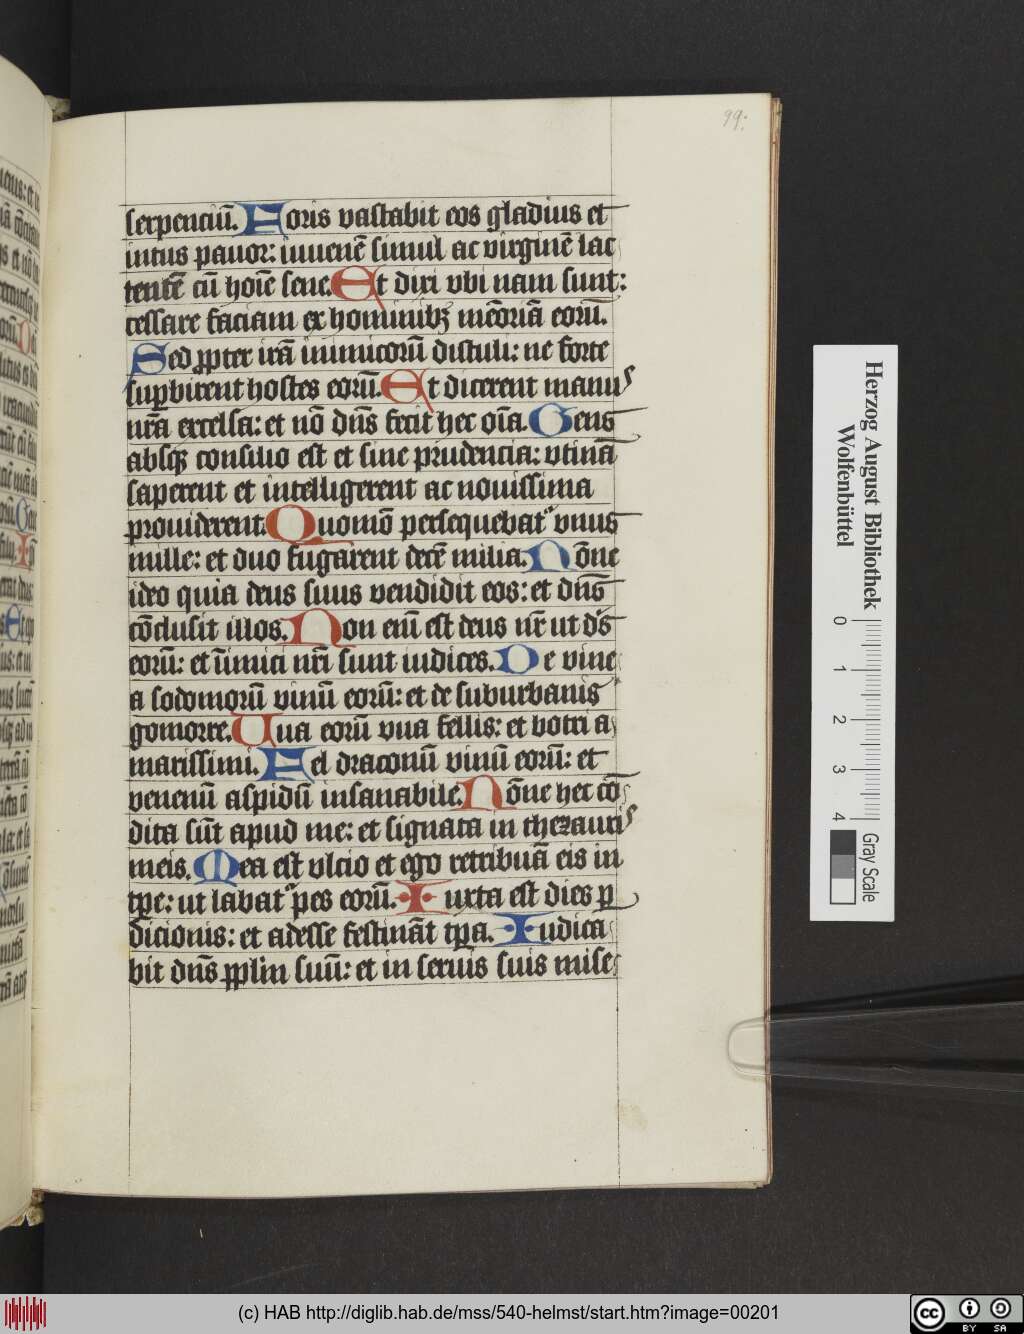 99.
serpenciū. Foris vastabit eos gladius et
intus pauor: iuuenē simul ac virginē lac
tentē cū hoīe sene. Et dixi vbi nam sunt:
cessare faciam ex hominibꝫ mēoriā eorū.
Sed ꝓpter irā inimicorū distuli: ne forte
suꝑbirent hostes eorū. Et dicerent manus
nr̄a excelsa: et nō dn̄s fecit hec oīa. Gens
absqꝫ consilio est et sine prudencia: vtinā
saperent et intelligerent ac nouissima
prouiderent. Quomō persequebat᷑ vnus
mille: et duo fugarent decē milia. Nōne
ideo quia deus suus vendidit eos: et dn̄s
cōclusit illos. Non eni̅ est deus nr̄ ut ds̄
eorū: et īimici nr̄i sunt iudices. De vine
a sodomorū vinū eorū: et de suburbanis
gomorre. Uua eorū vua fellis: et botri a
marissimi. Fel draconū vinū eorū: et
venenū aspidū insanabile. Nōne hec cō
dita sūt apud me: et signata in thezauris
meis. Mea est vlcio et ego retribuā eis in
tp̄e: ut labat᷑ pes eorū. Iuxta est dies ꝑ
dicionis: et adesse festināt tp̄a. Iudica
bit dn̄s pp̄lm suū: et in seruis suis mise
Herzog August Bibliothek
Wolfenbüttel
0 1 2 3 4
Gray Scale
(c) HAB http://diglib.hab.de/mss/540-helmst/start.htm?image=00201
cc BY SA